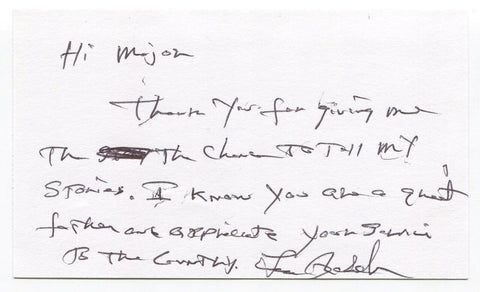 Hi Major
Thank you for giving me
The The Chance To Tell MY
Stories. I know you are a great
father and appreciate your service
To The Country.